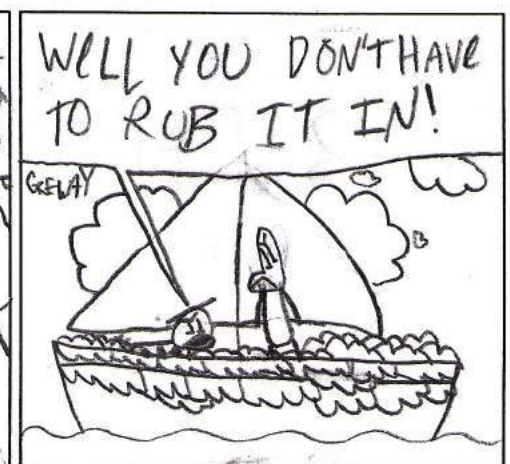 WELL YOU DON'T HAVE
TO RUB IT IN!